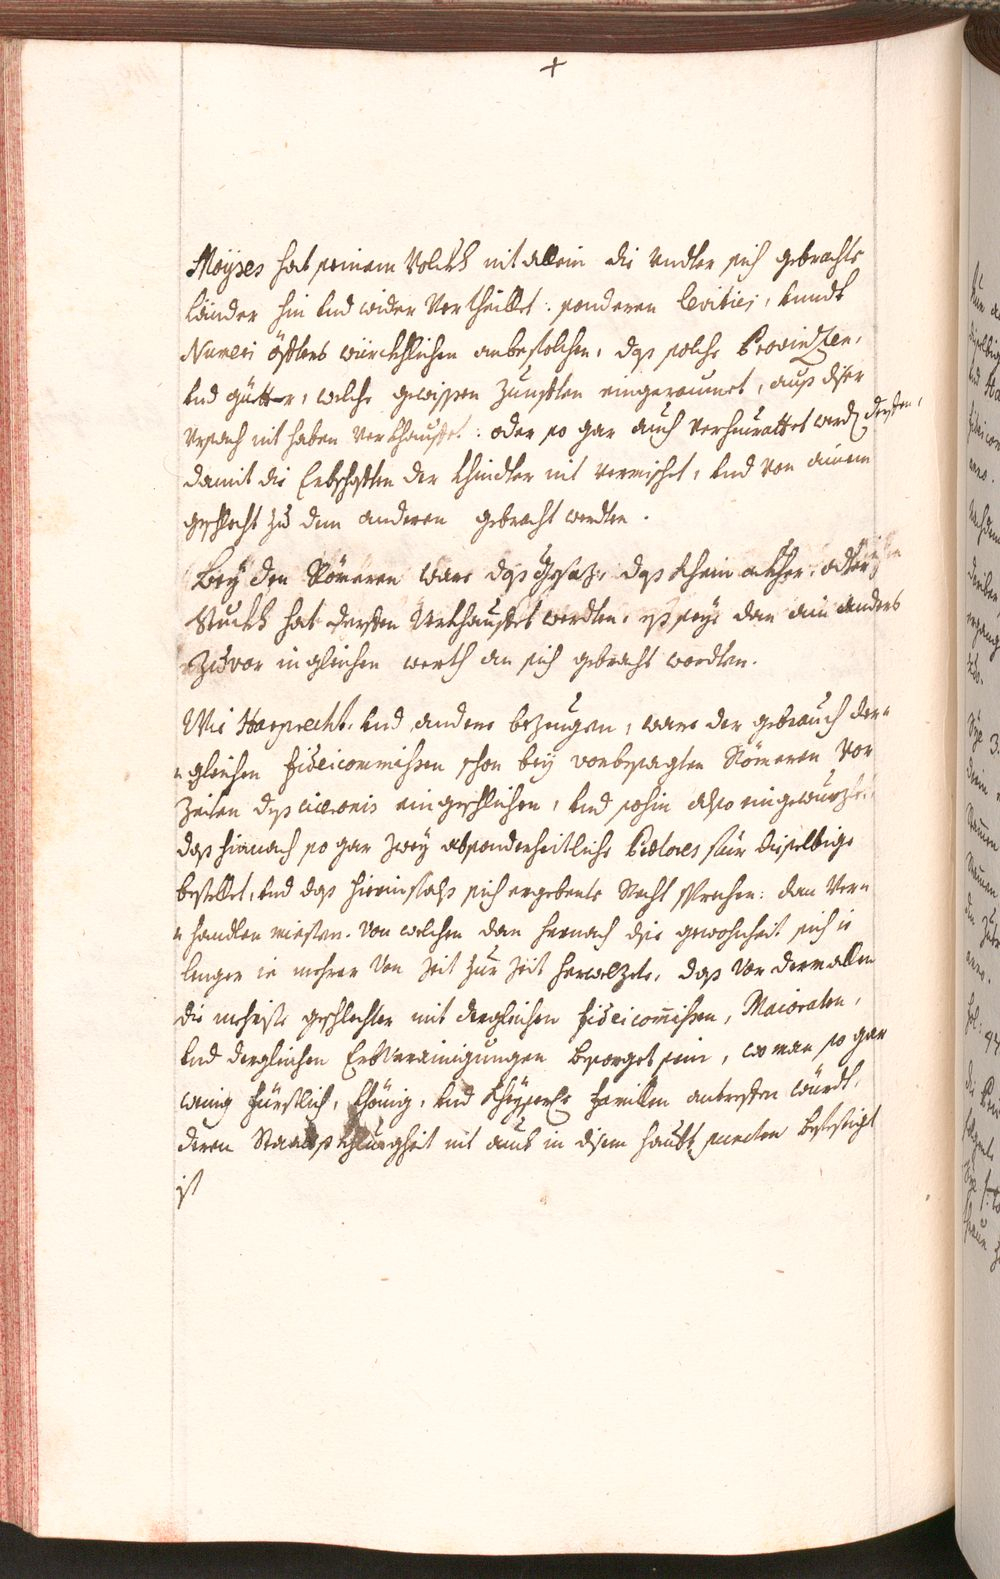 +
Moÿses hat seinem Volckh nit allein die undter sich gebrachte
Länder hin und wider Vertheillet: sonderen levitici, kundt
Numeri öffters würckhlichen anbefolchen, das solche Provintzen,
und gütter, welche gewissen Zunfften eingeraumet, auß diser
Ursach nit haben verkhauffet: oder so gar auch verheurattet werd derffen,
damit die Erbschafften der Khindter nit vermischet, und von ainem
geschlecht zu dem anderen gebracht werdten.
Bey den Römeren ware das gesaz, das khein ackher: odter
Stuckh hat derffen Verkhauffet werdten, es seye dan ain anders
zuvor in gleichen werth an sich gebracht wordten.
Wie Harprecht, und andere bezeugen, ware der gebrauch der-
-gleichen fideicommissen schon bey vorbesagten Römeren vor
Zeiten des ciceronis eingeschlichen, und sohin also eingewurzlet,
das hienach so gar zwey absonderheitliche Prætores für dieselbige
bestellet, und das hierinfahls sich ergebente Recht sprechen: dan Ver-
-handlen miesten. Von welchen dan hernach dise gewohnheit sich ie
lenger ie mehrer von Zeit zur Zeit herwelzete, das vor dermallen
die meiste geschlechter mit dergleichen fideicom̄issen, Maioraten,
und dergleichen ErbVerainigungen besorget sein, wo man so gar
wenig fürstlich, König, und Khayserle familien antreffen würdt,
deren Staats Khlugheit nit auch in disem haubt puncten befestigt
ist